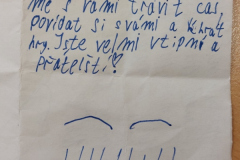 mě s vámi trávit čas,
povídat si s vámi a hrát
hry. Jste velmi vtipní a
přátelští!